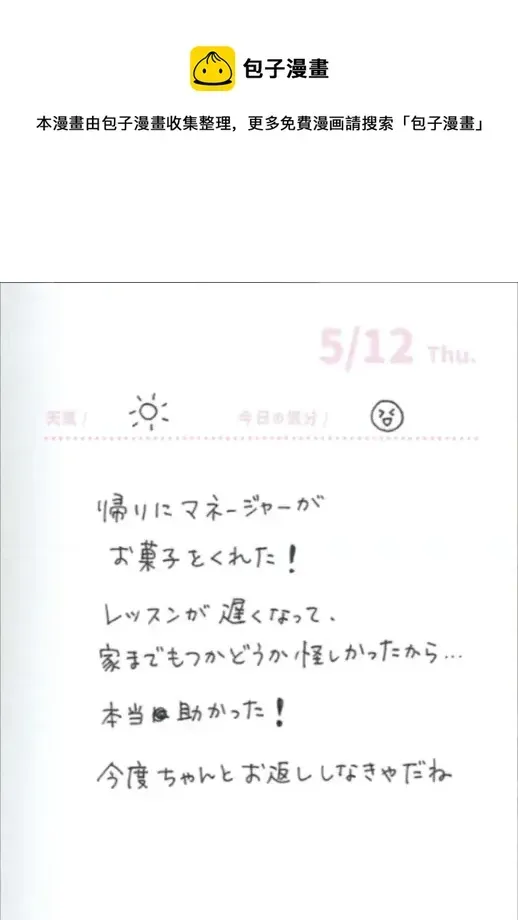 包子漫畫
本漫畫由包子漫畫收集整理，更多免費漫画請搜索「包子漫畫」
5/12 Thu.
天気/ 今日の気分/
帰りにマネージャーが
お菓子をくれた！
レッスンが遅くなって、
家までもつかどうか怪しかったから…
本当に助かった！
今度ちゃんとお返ししなきゃだね